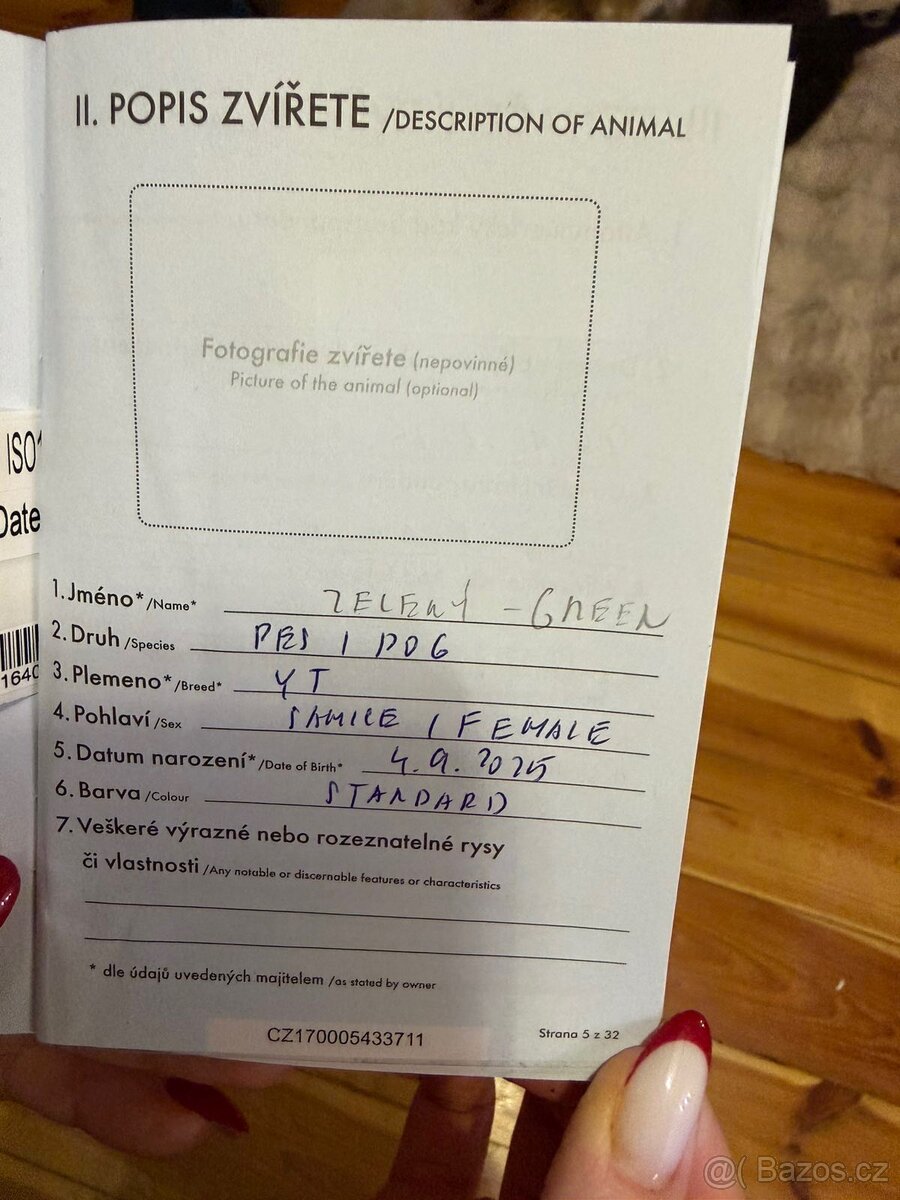 II. POPIS ZVÍŘETE /DESCRIPTION OF ANIMAL
Fotografie zvířete (nepovinné)
Picture of the animal (optional)
ISO
Date
1640
1. Jméno* /Name* ZELENÝ - GREEN
2. Druh /Species PES / DOG
3. Plemeno* /Breed* YT
4. Pohlaví /Sex SAMICE / FEMALE
5. Datum narození* /Date of Birth* 4.9.2025
6. Barva /Colour STANDARD
7. Veškeré výrazné nebo rozeznatelné rysy
či vlastnosti /Any notable or discernable features or characteristics
* dle údajů uvedených majitelem /as stated by owner
CZ170005433711
Strana 5 z 32
@( Bazos.cz